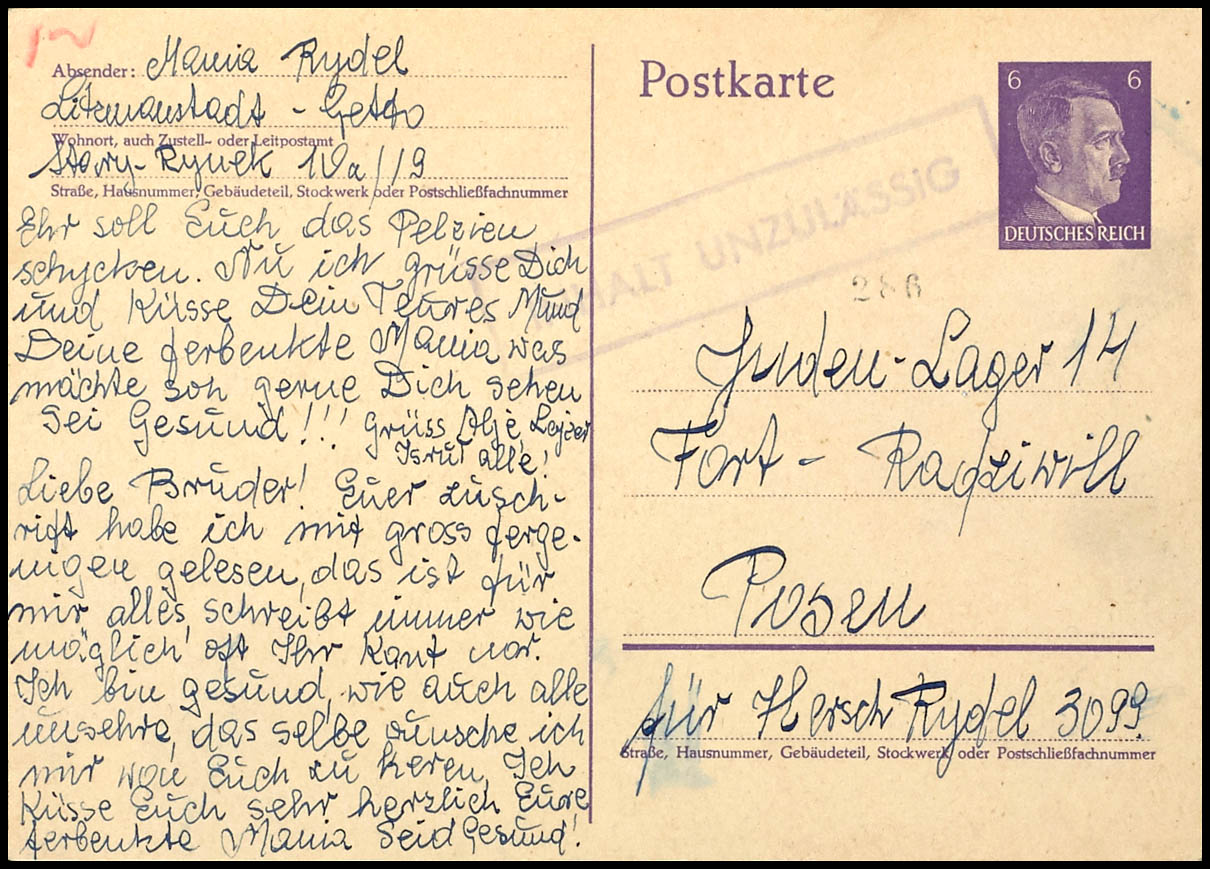 Absender: Mania Rydel
Litzmanstadt - Getto
Wohnort, auch Zustell- oder Leitpostamt
Stary-Rynek 10a/19
Straße, Hausnummer, Gebäudeteil, Stockwerk oder Postschließfachnummer
Ehr soll Euch das Pelzien
schycken. Nu ich grüsse Dich
und Küsse Dein Teures Mund
Deine ferbenkte Mania was
mächte son gerne Dich sehen
Sei Gesund!!! Grüss Alje, Lejzer
Isrul alle!
Liebe Brüder! Euer zusch-
rift habe ich mit gross ferge-
nugen gelesen, das ist für
mir alles, schreibt immer wie
mäglich oft Ihr Kant nor.
Ich bin gesund, wie auch alle
unsehre, das selbe wunsche ich
mir won Euch zu heren, Ich
Küsse Euch sehr herzlich Eure
ferbenkte Mania Seid Gesund!
Postkarte
6 6
DEUTSCHES REICH
INHALT UNZULÄSSIG
286
Juden-Lager 14
Fort - Radziwill
Posen
für Hersch Rydel 3099
Straße, Hausnummer, Gebäudeteil, Stockwerk oder Postschließfachnummer